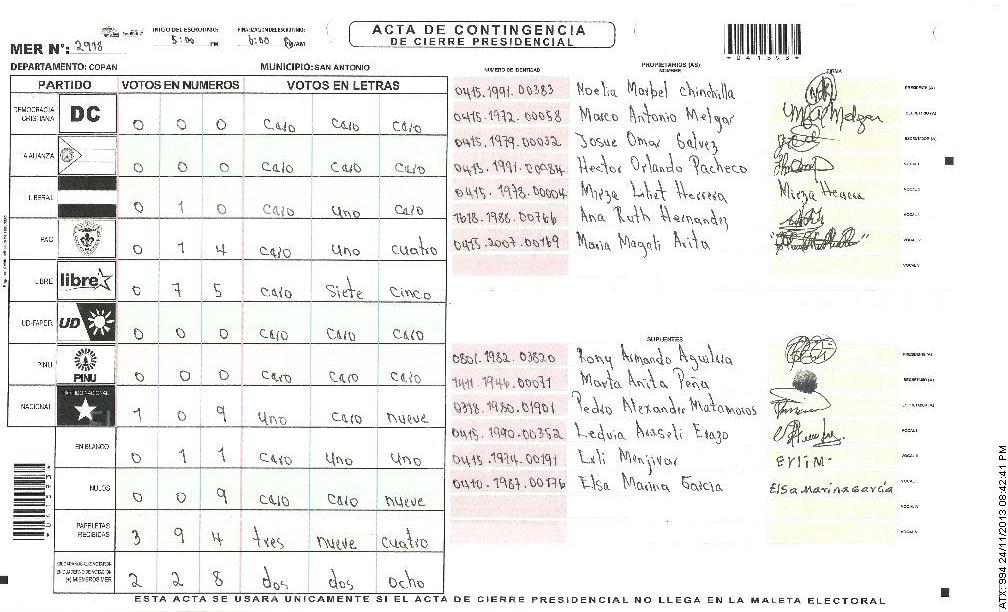 ACTA DE CONTINGENCIA
DE CIERRE PRESIDENCIAL
INICIO DEL ESCRUTINIO: FINALIZACION DEL ESCRUTINIO:
5:00 PM 6:00 PM/AM
MER N°: 2918
*041593*
DEPARTAMENTO: COPAN MUNICIPIO: SAN ANTONIO
PARTIDO VOTOS EN NUMEROS VOTOS EN LETRAS
DEMOCRACIA CRISTIANA DC 0 0 0 caro caro caro
LA ALIANZA 0 0 0 caro caro caro
LIBERAL 0 1 0 caro uno caro
PAC 0 1 4 caro uno cuatro
LIBRE libre 0 7 5 caro siete cinco
UD-FAPER UD 0 0 0 caro caro caro
PINU PINU 0 0 0 caro caro caro
NACIONAL 1 0 9 uno caro nueve
EN BLANCO 0 1 1 caro uno uno
NULOS 0 0 9 caro caro nueve
PAPELETAS RECIBIDAS 3 9 4 tres nueve cuatro
2 2 8 dos dos ocho
NUMERO DE IDENTIDAD PROPIETARIOS (AS) NOMBRE FIRMA
0415.1991.00383 Noelia Maribel Chinchilla PRESIDENTE (A)
0415.1972.00058 Marco Antonio Melgar Melgar SECRETARIO (A)
0415.1979.00032 Josue Omar Galvez ESCRUTADOR (A)
0415.1991.00984 Hector Orlando Pacheco VOCAL I
0415.1978.00004 Mirza Lihet Herrera Mirza Herrera VOCAL II
1618.1988.00766 Ana Ruth Hernandez VOCAL III
0415.2007.00169 Maria Magali Arita VOCAL IV
VOCAL V
SUPLENTES
0801.1982.03820 Rony Armando Aguilera PRESIDENTE (A)
1411.1946.00071 Marta Anita Peña SECRETARIO (A)
0318.1980.01901 Pedro Alexander Matamoros ESCRUTADOR (A)
0415.1990.00352 Leduia Araseli Erazo VOCAL I
0415.1974.00191 Erli Menjivar ErliM. VOCAL II
0410.1987.00176 Elsa Marina Garcia Elsa Marina Garcia VOCAL III
VOCAL IV
VOCAL V
*041593*
ESTA ACTA SE USARA UNICAMENTE SI EL ACTA DE CIERRE PRESIDENCIAL NO LLEGA EN LA MALETA ELECTORAL
ATX7994 24/11/2013 08:42:41 PM